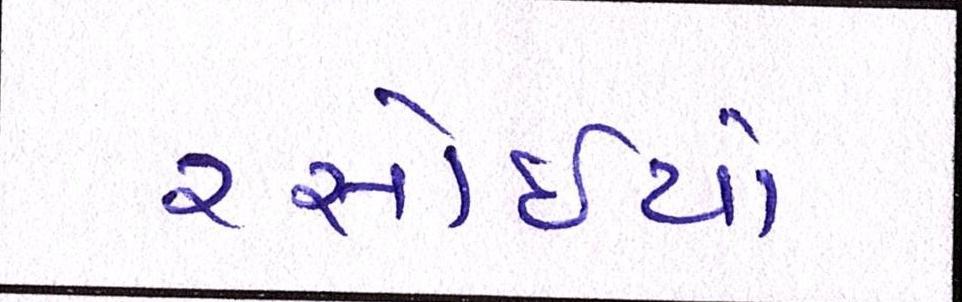 રસોઈયો